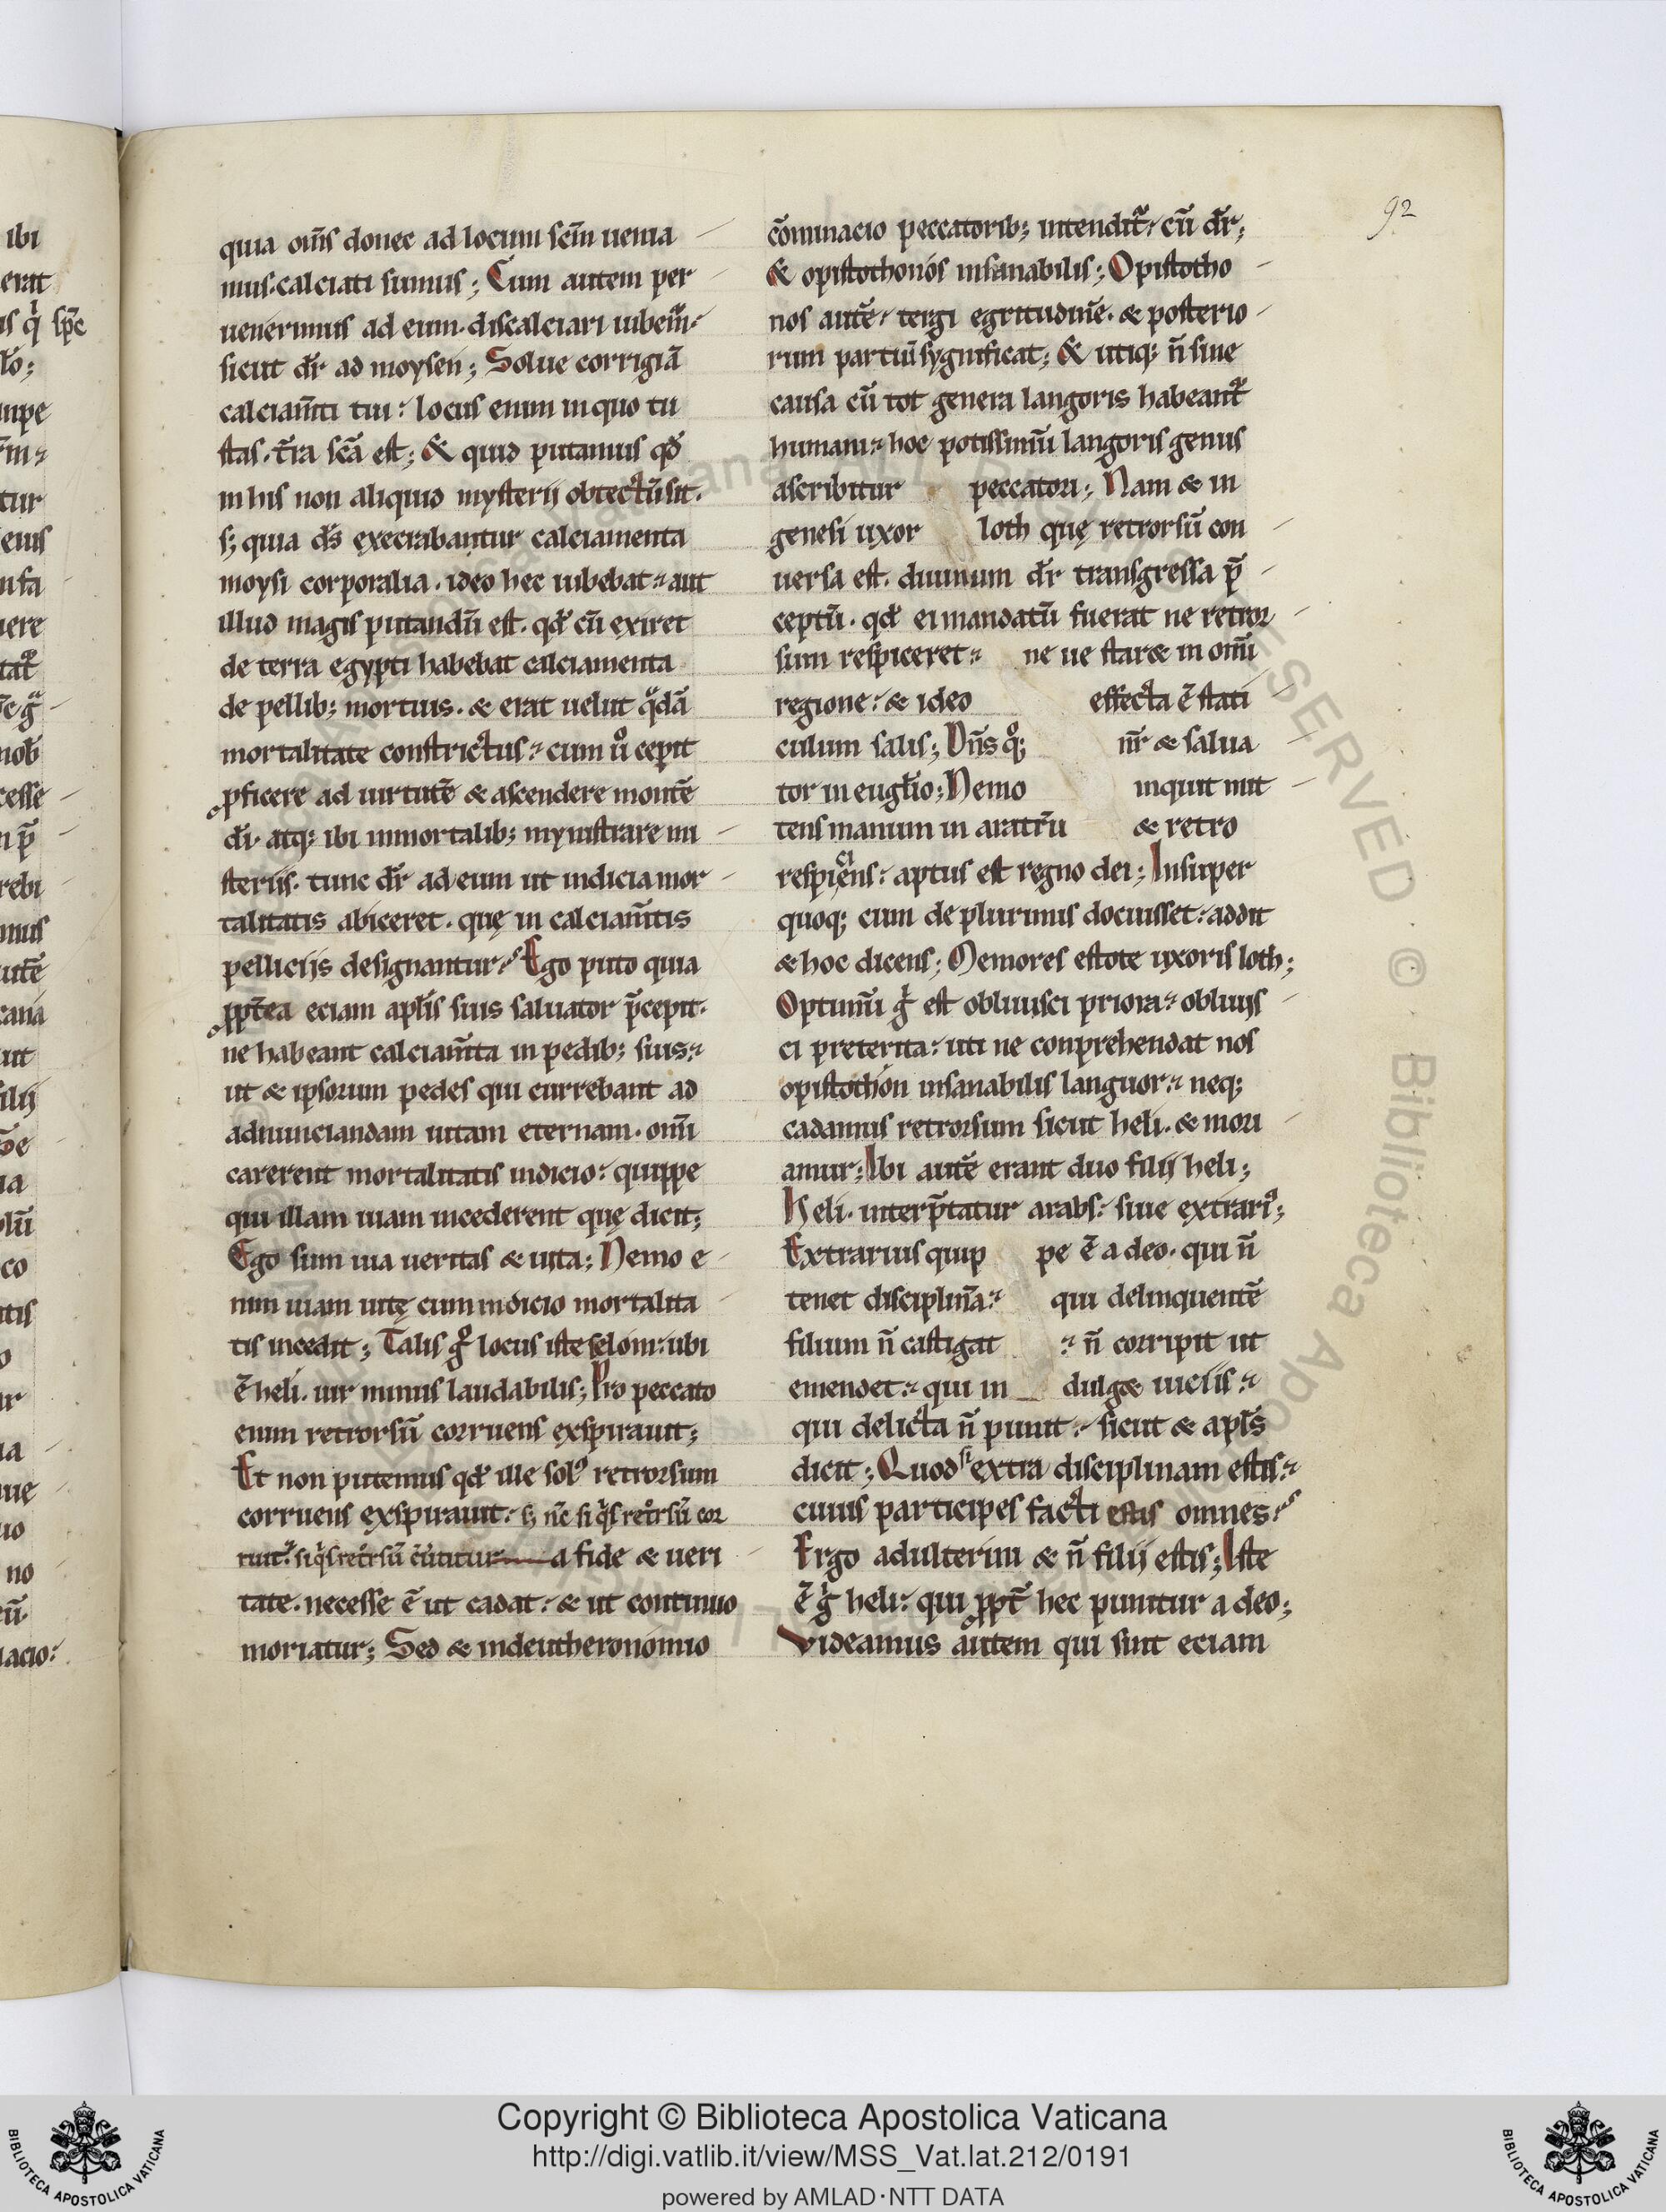 92
quia om̄s donec ad locum sc̄m uenia
mus. calciati sumus; Cum autem per
uenerimus ad eum. discalciari iubem᷑
sicut dr̄ ad moysen; Solue corrigiā
calciam̄ti tui: locus enim in quo tu
stas. t̄ra sc̄a est; & quid putamus qđ
in his non aliquid mysterii obtectū sit.
s; quia ds̄ execrabantur calciamenta
moysi corporalia. ideo hec iubebat: aut
illud magis putandū est. qđ cū exiret
de terra egypti habebat calciamenta
de pellib; mortuis. & erat uelut qͣdā
mortalitate constrictus: cum uͦ cepit
ꝓficere ad uirtutē & ascendere montē
dī. atq; ibi inmortalib; mynistrare mi
steriis. tunc dr̄ ad eum ut indicia mor
talitatis abiceret. quę in calciam̄tis
pelliciis designantur: Ego puto quia
ꝓpt̄ea eciam apl̄is suis saluator p̄cepit.
ne habeant calciam̄ta in pedib; suis:
ut & ipsorum pedes qui currebant ad
adnunciandam uitam eternam. om̄i
carerent mortalitatis indicio: quippe
qui illam uiam incederent quę dicit;
Ego sum uia ueritas & uita; Nemo e
nim uiam uitę cum indicio mortalita
tis incedit; Talis gͦ locus iste selom: ubi
ē heli. uir minus laudabilis; Pro peccato
enim retrorsū corruens exspirauit;
Et non putemus qđ ille solꝰ retrorsum
corruens exspirauit: s; nc̄ si qͥs ret͛rsū cor
ruit: si qͥs ret͛rsū c̄u͛titur a fide & ueri
tate. necesse ē ut cadat: & ut continuo
moriatur; Sed & in deutheronomio
c̄ominacio peccatorib; intendit᷑: cū dr̄;
& opistothonos insanabilis; Opistotho
nos autē: tergi egritudinē. & posterio
rum partiū sygnificat; & utiq; n̄ sine
causa cū tot genera langoris habeant᷑
humani: hoc potissimū langoris genus
ascribitur peccatori; Nam & in
genesi uxor loth quę retrorsū con
uersa est. diuinum dr̄ transgressa p̄
ceptū. qđ ei mandatū fuerat ne retror
sum respiceret: ne ue star& in omī
regione: & ideo effecta ē stati
culum salis; Dn̄s qͦ; nr̄ & salua
tor in eugl̄io; Nemo inquit mit
tens manum in aratrū & retro
respiciens: aptus est regno dei; Insuper
quoq; cum de plurimis docuisset: addit
& hoc dicens; Memores estote uxoris loth;
Optimū gͥ est obliuisci priora: obliuis
ci preterita: uti ne conprehendat nos
opistothon insanabilis languor: neq;
cadamus retrorsum sicut heli. & mori
amur; Ibi autē erant duo filii heli;
Heli. interp̄tatur arabs: siue extrariꝰ;
Extrarius quip pe ē a deo. qui n̄
tenet disciplinā: qui delinquentē
filium n̄ castigat : n̄ corripit ut
emendet: qui in dulg& uiciis:
qui delicta n̄ punit: sicut & apl̄s
dicit; Quod si extra disciplinam estis:
cuius participes facti estis omnes:
Ergo adulterini & n̄ filii estis; Iste
ē gͥ heli: qui ꝓpt̄ hec punitur a deo;
Videamus autem qui sint eciam
Copyright © Biblioteca Apostolica Vaticana
http://digi.vatlib.it/view/MSS_Vat.lat.212/0191
powered by AMLAD·NTT DATA
BIBLIOTECA APOSTOLICA VATICANA
BIBLIOTECA APOSTOLICA VATICANA